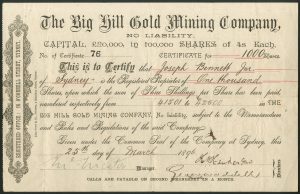 The Big Hill Gold Mining Company,
NO LIABILITY.
CAPITAL, £20,000, in 100,000 SHARES of 4s. Each.
No. of Certificate 76
CERTIFICATE for 1000 Shares
This is to Certify that Joseph Bennett Jnr
Sydney is the Registered Proprietor of One thousand
Shares, upon which the sum of Three Shillings per Share has been paid
numbered respectively from 41501 to 42500 in THE
BIG HILL GOLD MINING COMPANY, No Liability, subject to the Memorandum
and Rules and Regulations of the said Company.
Given under the Common Seal of the Company at Sydney, this
25th day of March 1896
Manager
CALLS ARE PAYABLE ON SECOND WEDNESDAY IN A MONTH.
REGISTERED OFFICE: O'CONNELL STREET, SYDNEY.